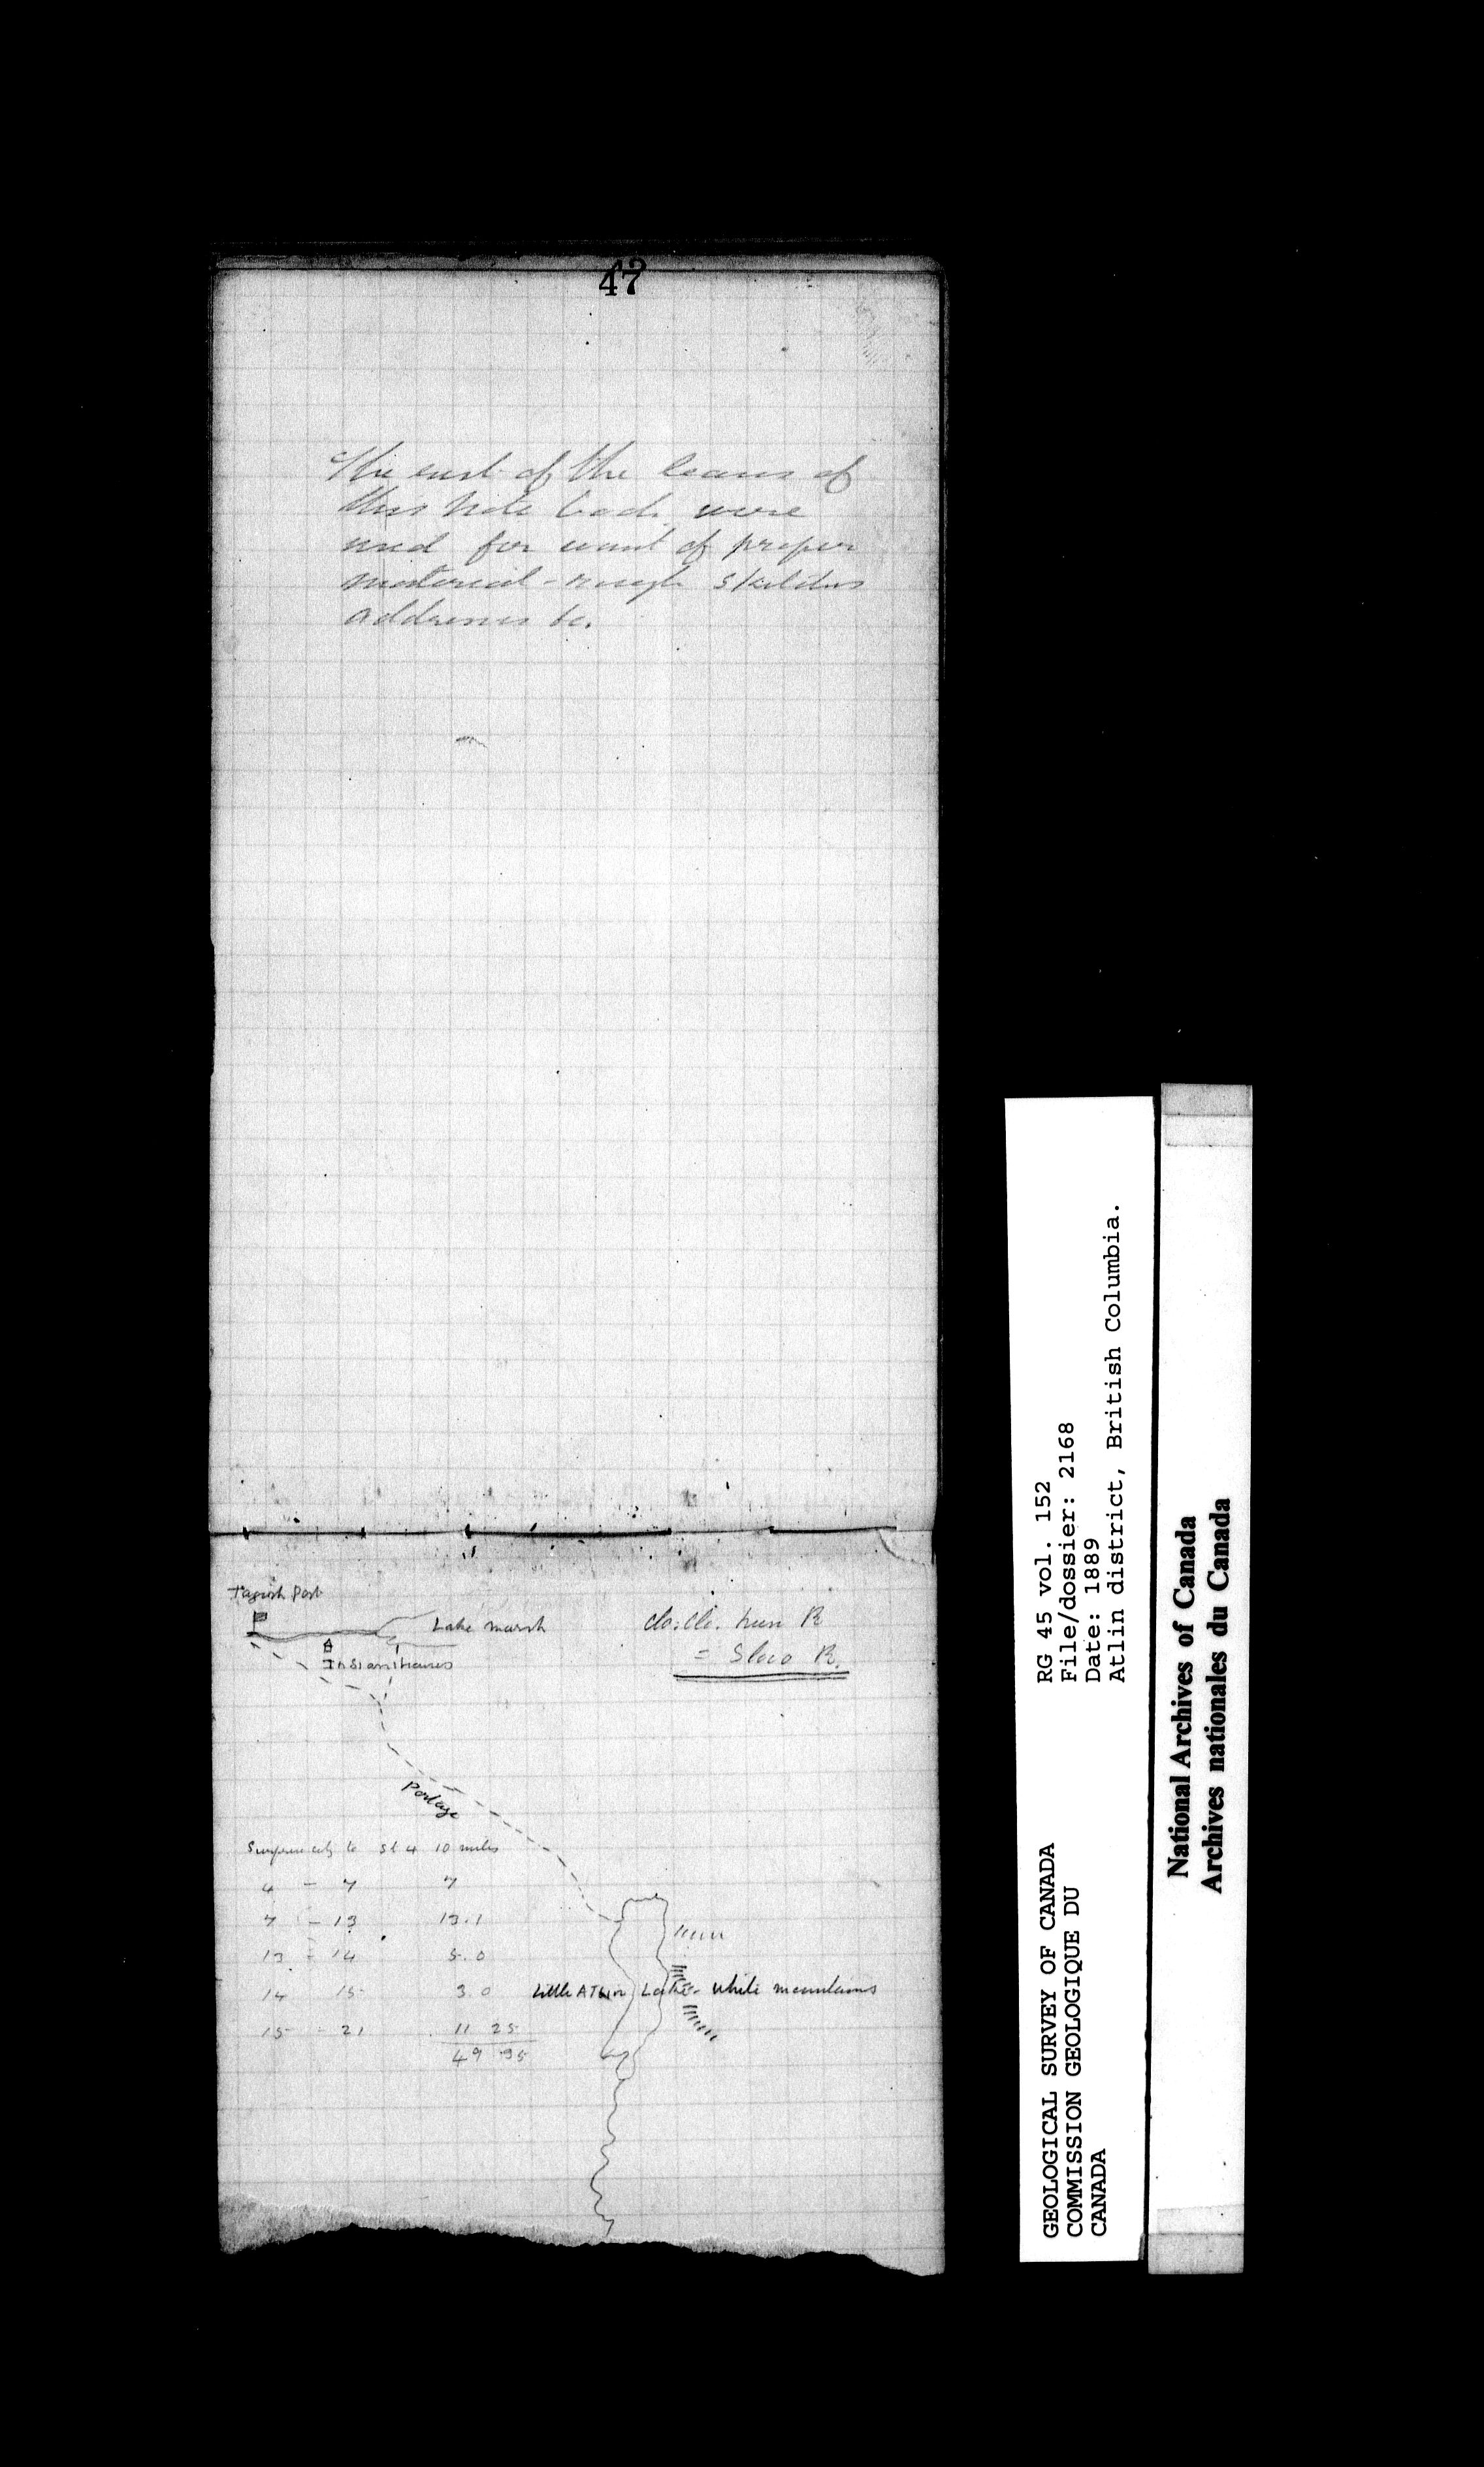 47
The rest of the leaves of
this note book were
used for want of proper
material - rough sketches
addresses &c.
Tagish Post
Lake Marsh
Indian houses
R
= Sloo R.
Portage
to St 4 10 miles
4 - 7 7
7 - 13 13.1
13 - 14 5.0
14 15 3.0
15 - 21 11 25
49 35
Little Atlin Lake - White mountains
GEOLOGICAL SURVEY OF CANADA
COMMISSION GEOLOGIQUE DU
CANADA
RG 45 vol. 152
File/dossier: 2168
Date: 1889
Atlin district, British Columbia.
National Archives of Canada
Archives nationales du Canada